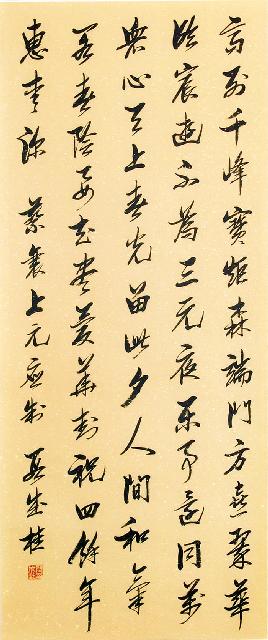 高列千峰寶炬森端門方喜翠華
臨宸遊不為三元夜樂事還同萬
眾心天上春光留此夕人間和氣
閣春陰要知盡慶華封祝四餘年
惠愛深 蔡襄上元應制 成桂